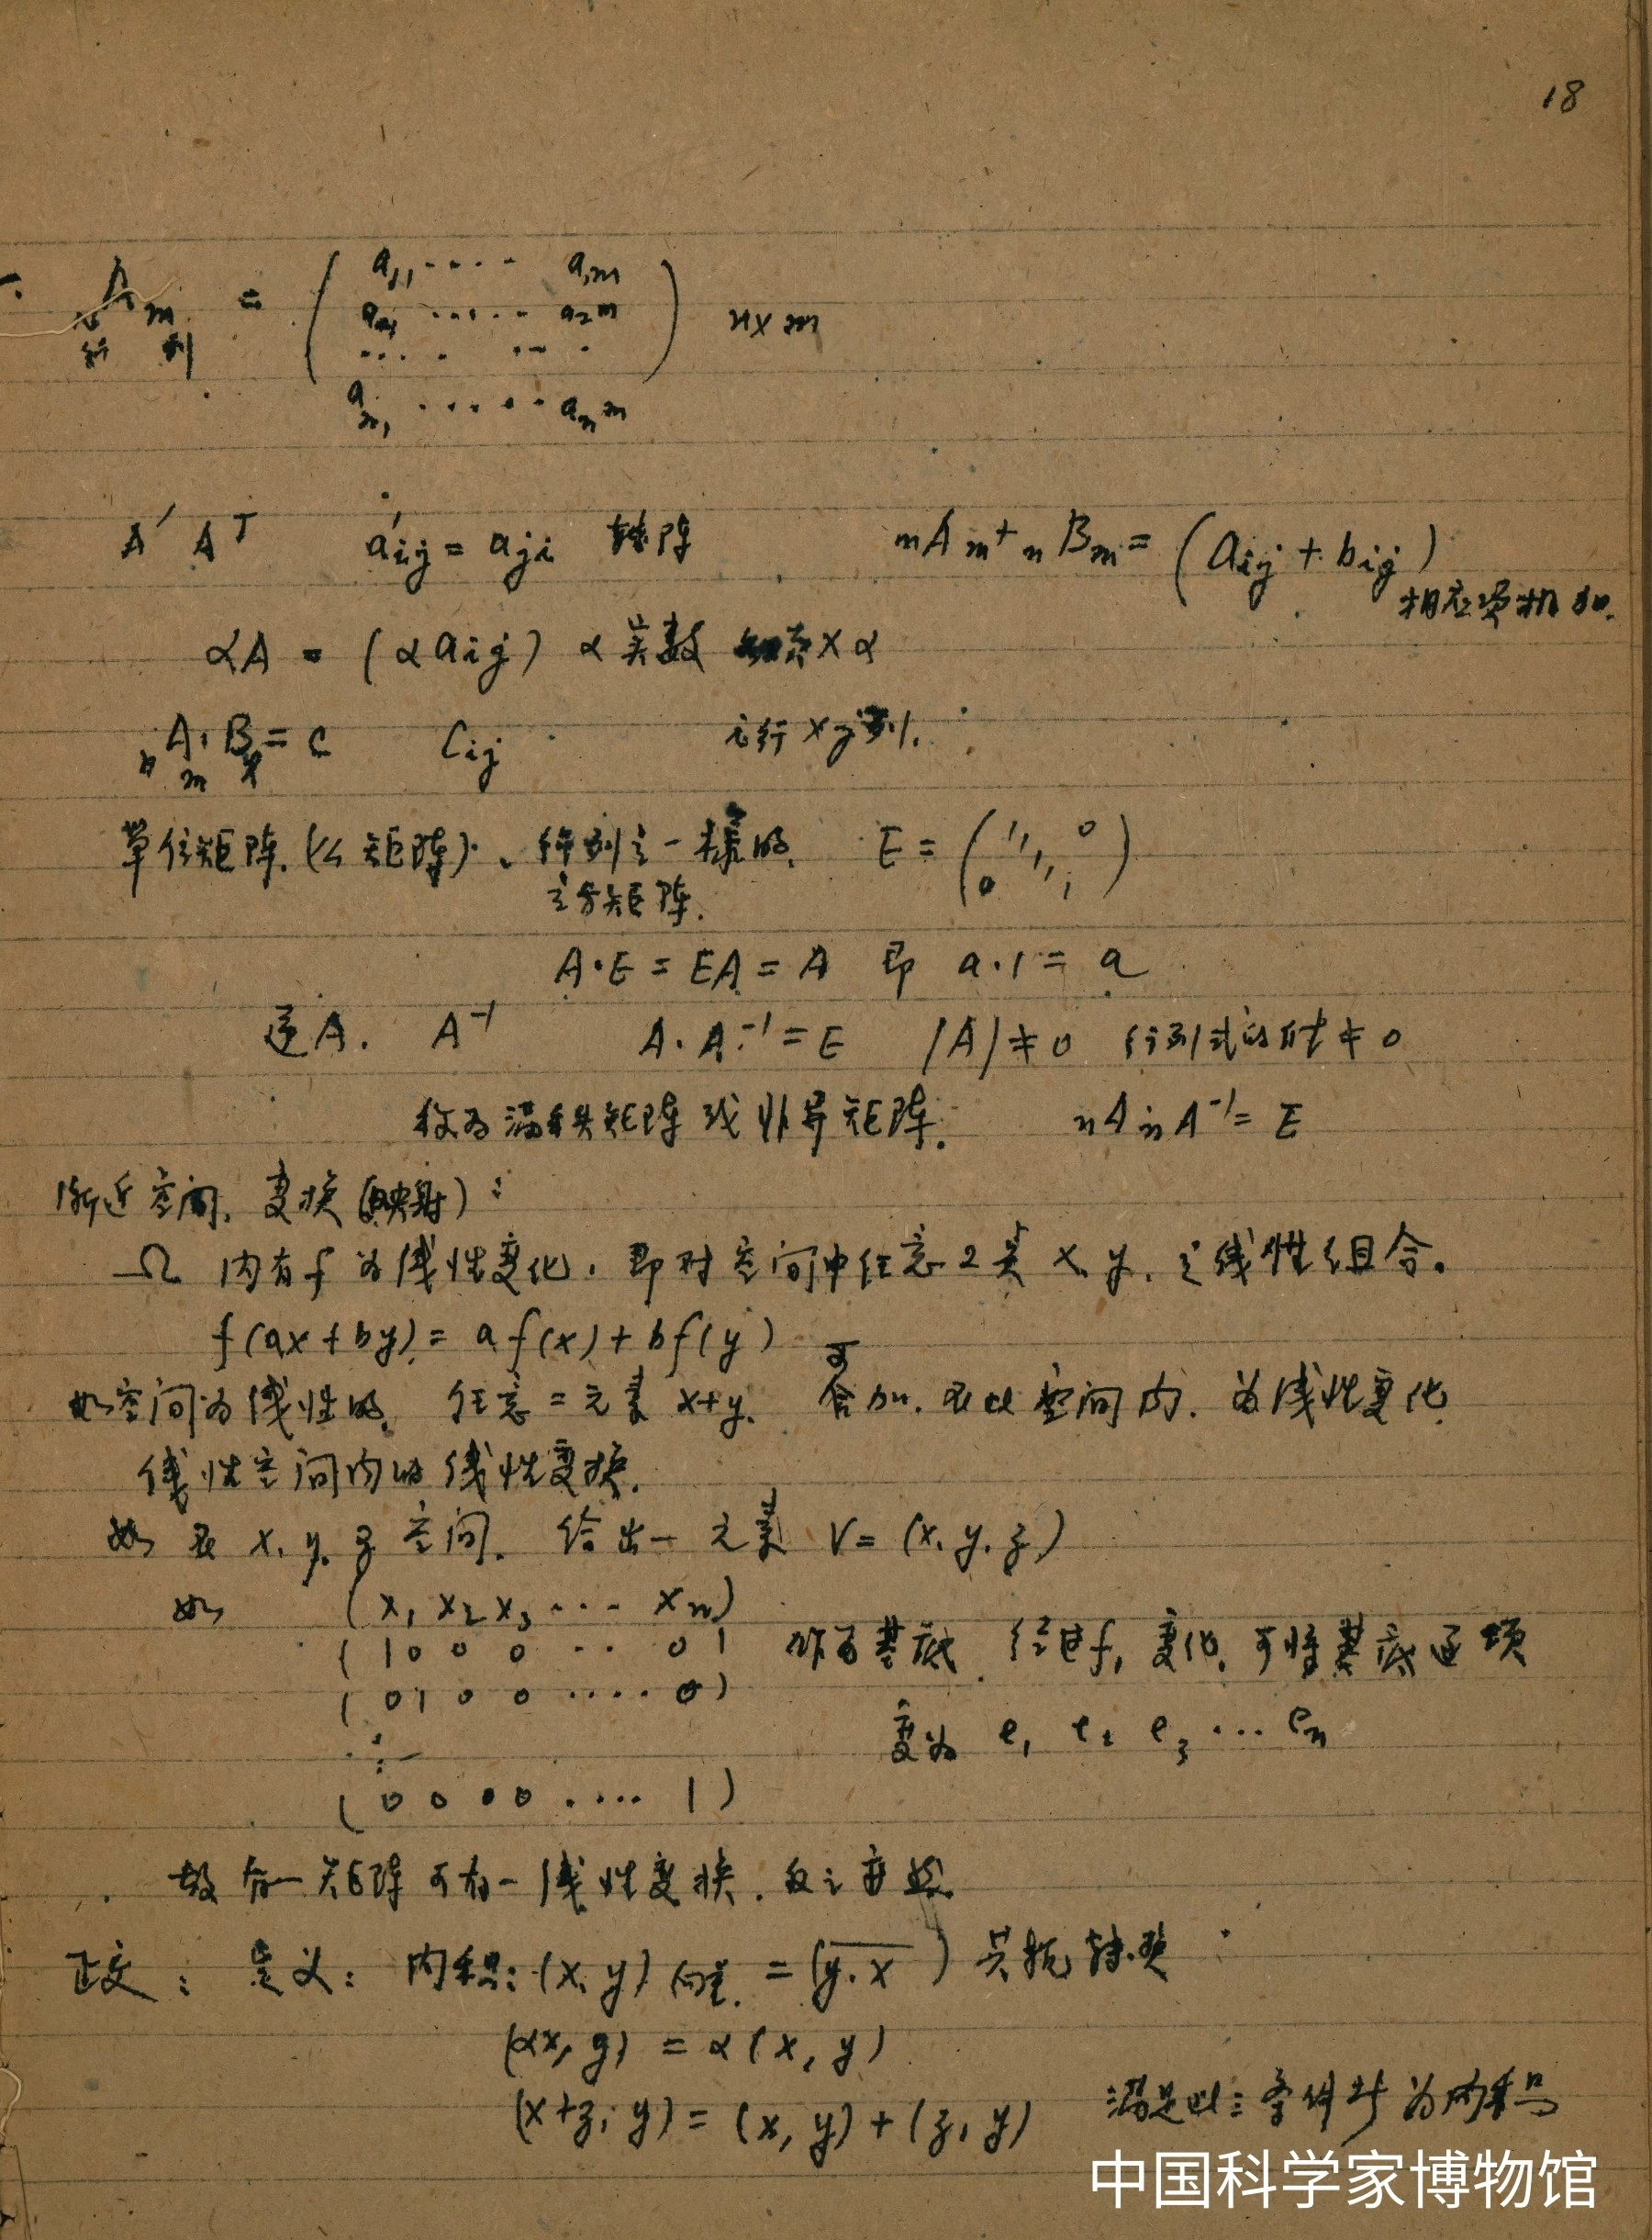 18
A = ( a₁₁ ····· a₁m
n m a₂₁ ······ a₂m ) n×m
行 列 ···· ····
aₙ₁ ······ aₙm
A′ Aᵀ a′ij = aji 转阵 nAm + nBm = (aij + bij)
相应项相加.
αA = (αaij) α实数 ×α
nAm·Bx = C Cij i行×j列.
单位矩阵.(幺矩阵)、行列之一样的. E = ( 1 1 0 0 1 1 )
方矩阵.
A·E = EA = A 即 a·1 = a
逆A. A⁻¹ A·A⁻¹ = E |A|≠0 行列式的 ≠0
称为满秩矩阵或非异矩阵. nAnA⁻¹ = E
空间. 变换(映射):
Ω 内有f为线性变化. 即对空间中任意2 x, y. 之线性组合.
f(ax+by) = af(x)+bf(y)
如空间为线性的. 任意二元素 x+y. 可 加. 在此空间内. 为线性变化
线性空间内的线性变换.
如在x, y, z空间. 给出一元素 V = (x, y, z)
如 (x₁ x₂ x₃ ··· xn)
(1 0 0 0 ·· 0) 作为基底. 经过f, 变化. 可将基底逐项
(0 1 0 0 ····· 0)
变为 e₁ e₂ e₃ ··· en
⋮
(0 0 0 0 ····· 1)
故有一矩阵可有一线性变换. 反之亦然.
正交: 定义: 内积: (x, y) = (y̅,̅ ̅x̅) 共轭转换
(αx, y) = α(x, y)
(x+z, y) = (x, y)+(z, y) 满足此三条件 为内积
中国科学家博物馆